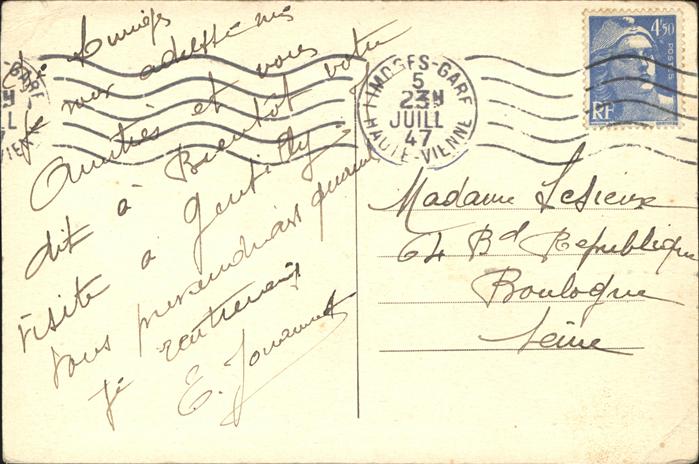 Je vous adresse mes
Amitiés et vous
dit à Bientôt votre
visite à Gentilly
vous quand
je rentrerais
E.
LIMOGES-GARE
5
23H
JUILL
47
HAUTE-VIENNE
4F50
POSTES
RF
Madame Lesieux
64 Bd Republique
Boulogne
Seine